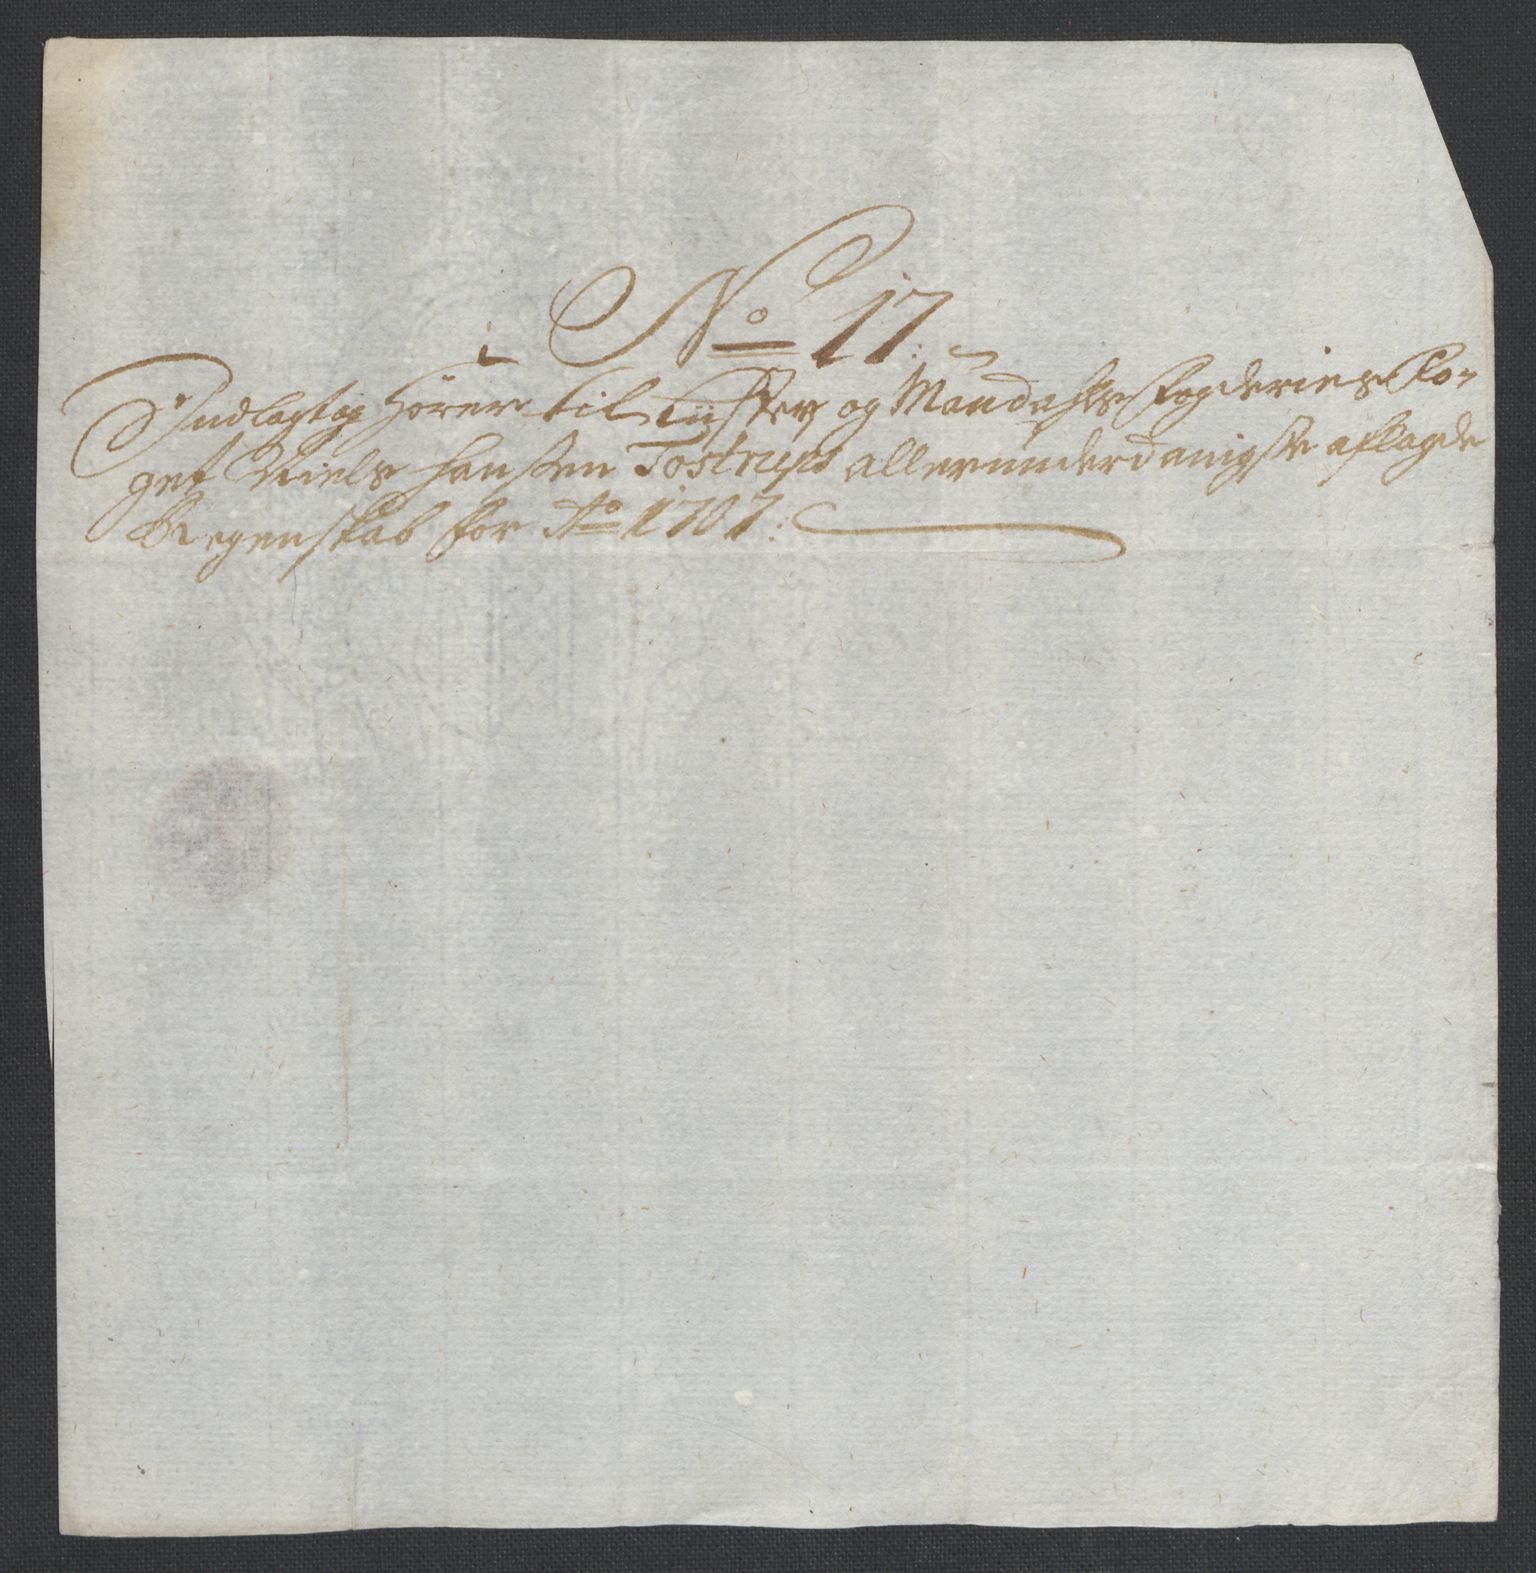 No 17:
Indlagt og hører til Lister og Mandahls fogderies Fo-
get Niels Hansen Tostrups allerunderdanigste aflagde
Regenskab for Ao 1707: